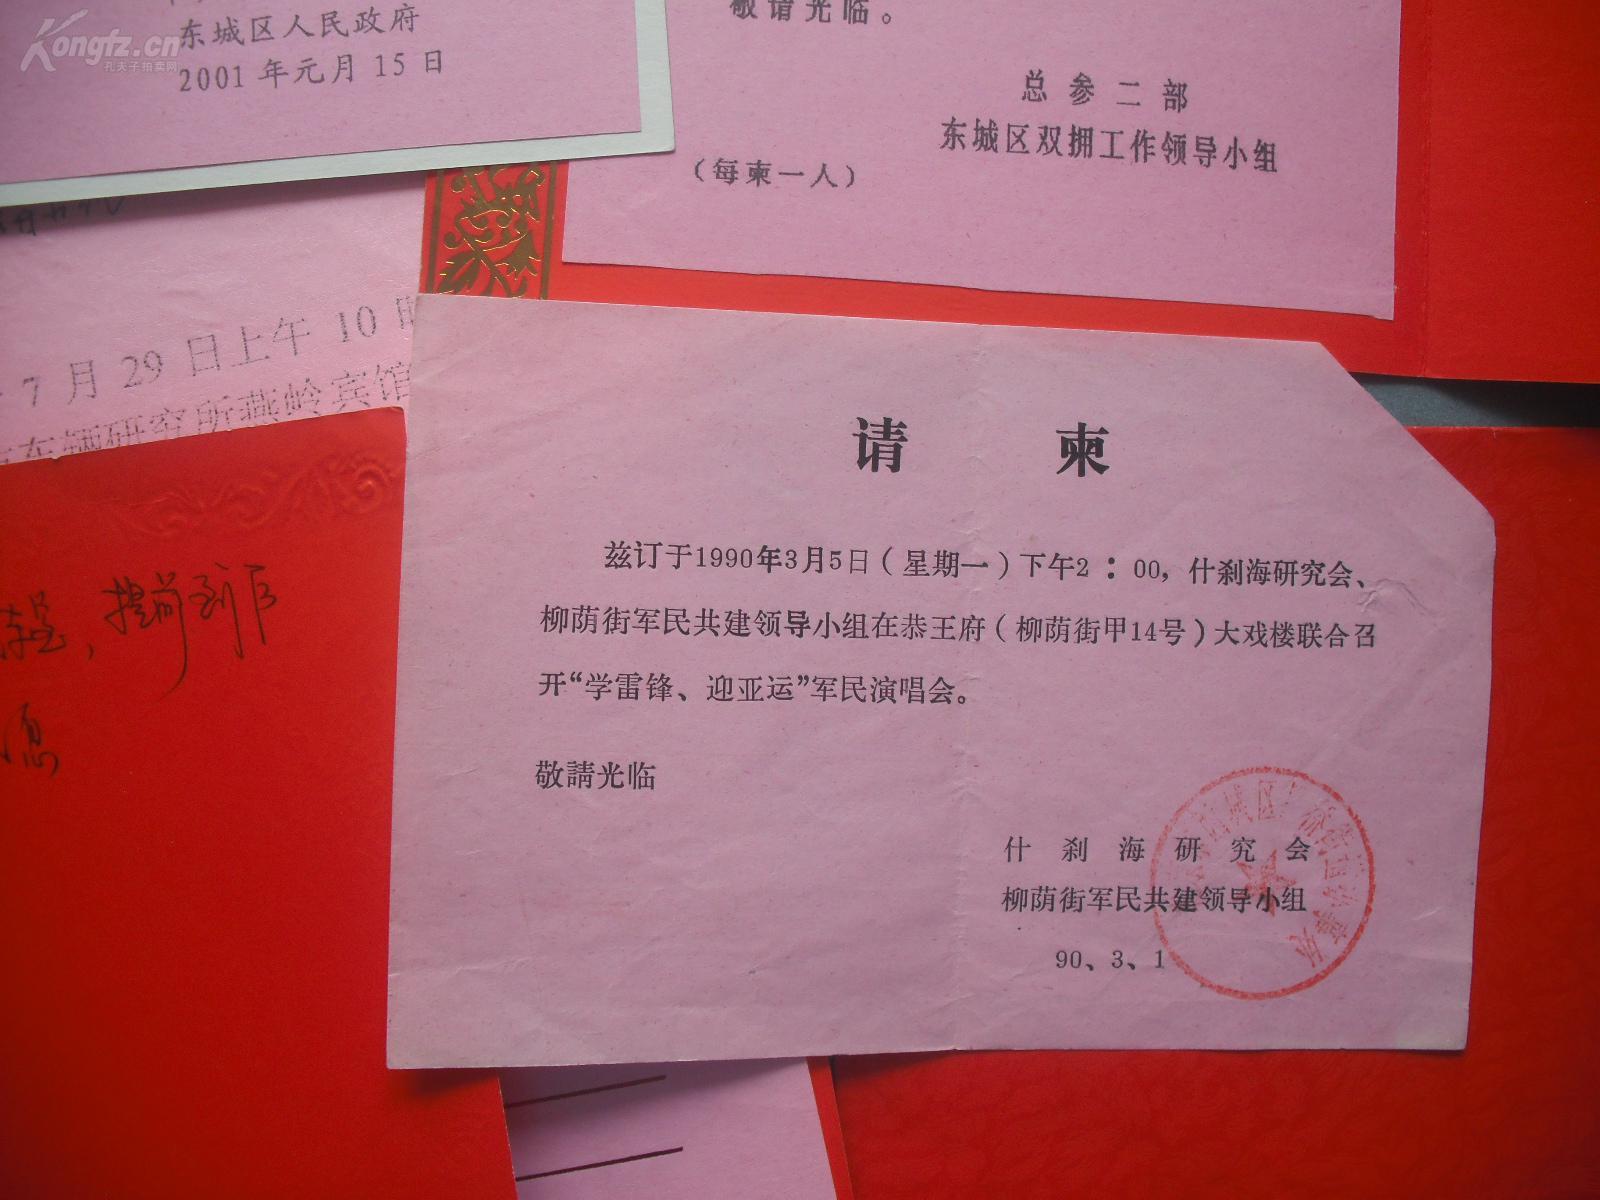 Kongfz.cn
孔夫子拍卖网
东城区人民政府
2001年元月15日
敬请光临。
总参二部
东城区双拥工作领导小组
(每柬一人)
7月29日上午10时
车辆研究所燕岭宾馆
请柬
兹订于1990年3月5日(星期一)下午2:00,什刹海研究会、
柳荫街军民共建领导小组在恭王府(柳荫街甲14号)大戏楼联合召
开“学雷锋、迎亚运”军民演唱会。
敬請光临
什刹海研究会
柳荫街军民共建领导小组
90、3、1